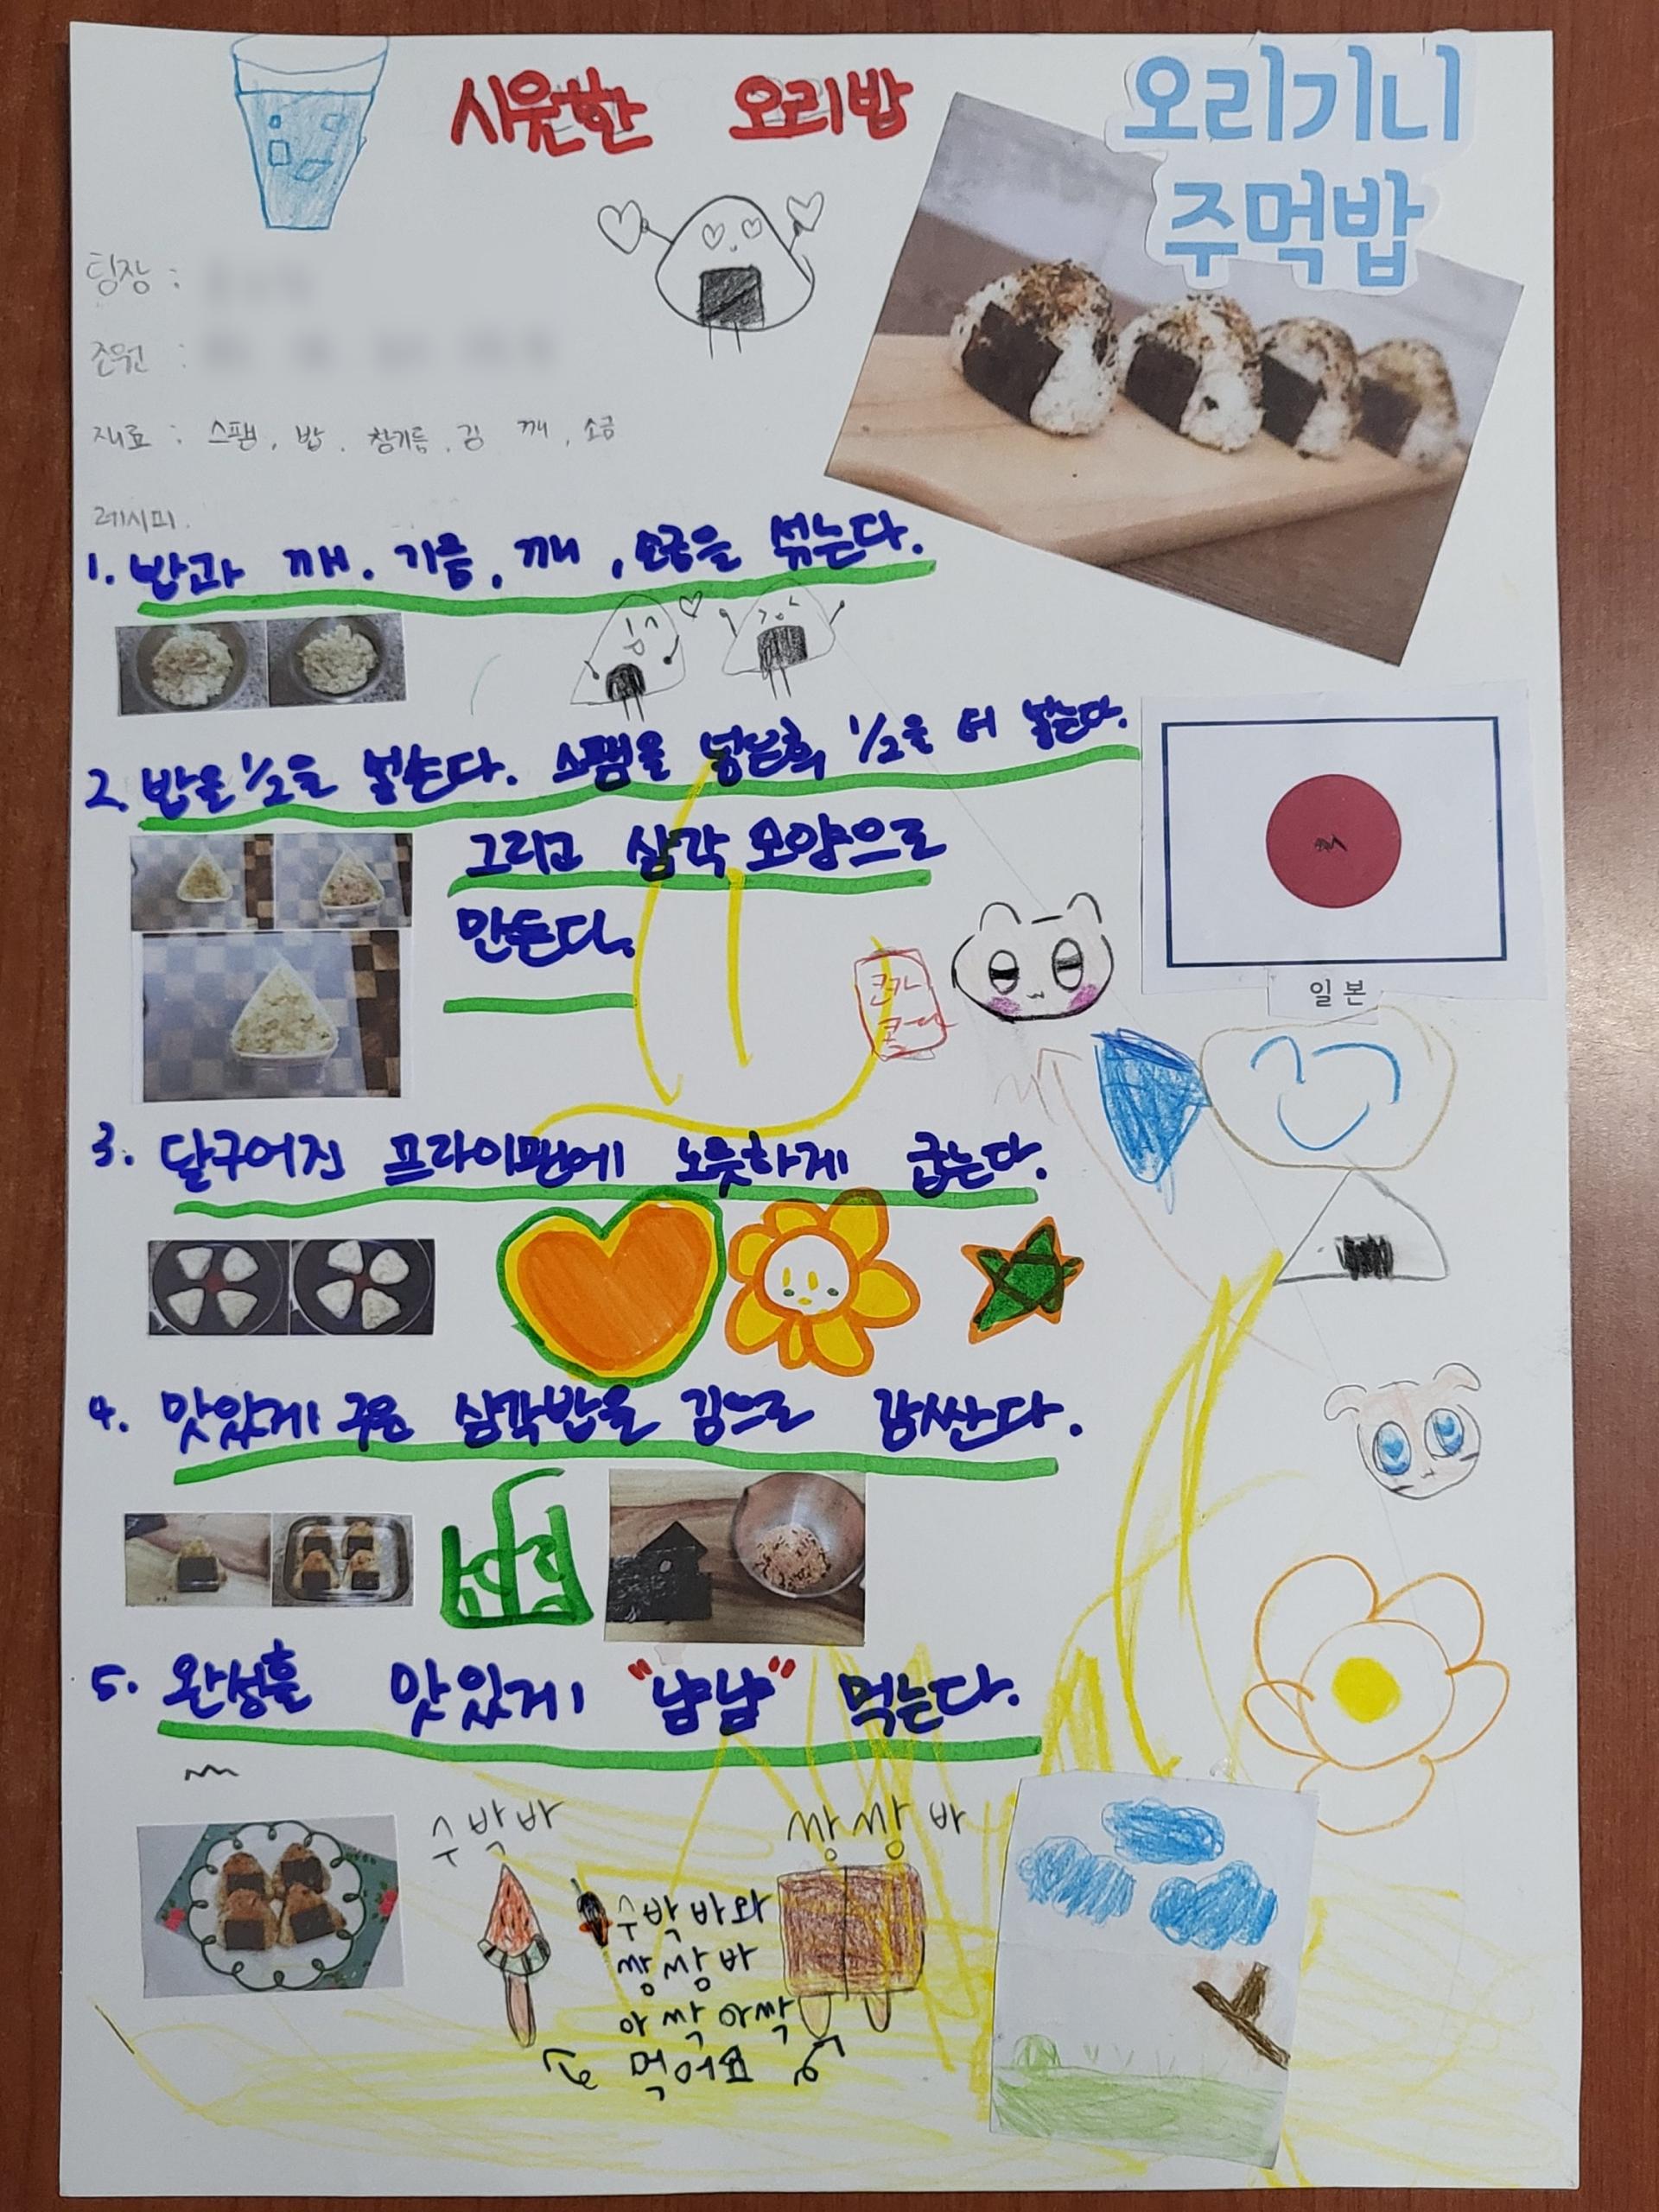 시원한 오리밥
오리기니
주먹밥
팀장 :
조원 :
재료 : 스팸, 밥, 참기름, 김 깨, 소금
레시피.
1. 밥과 깨, 기름, 깨, 소금을 섞는다.
2. 밥을 1/2을 넣는다. 스팸을 넣은후, 1/2을 더 넣는다.
그리고 삼각 모양으로
만든다.
일본
코카
코라
3. 달구어진 프라이팬에 노릇하게 굽는다.
4. 맛있게 구운 삼각밥을 김으로 감싼다.
5. 완성흘 맛있게 "냠냠" 먹는다.
수박바
쌍쌍바
수박바와
쌍쌍바
아싹아싹
먹어요